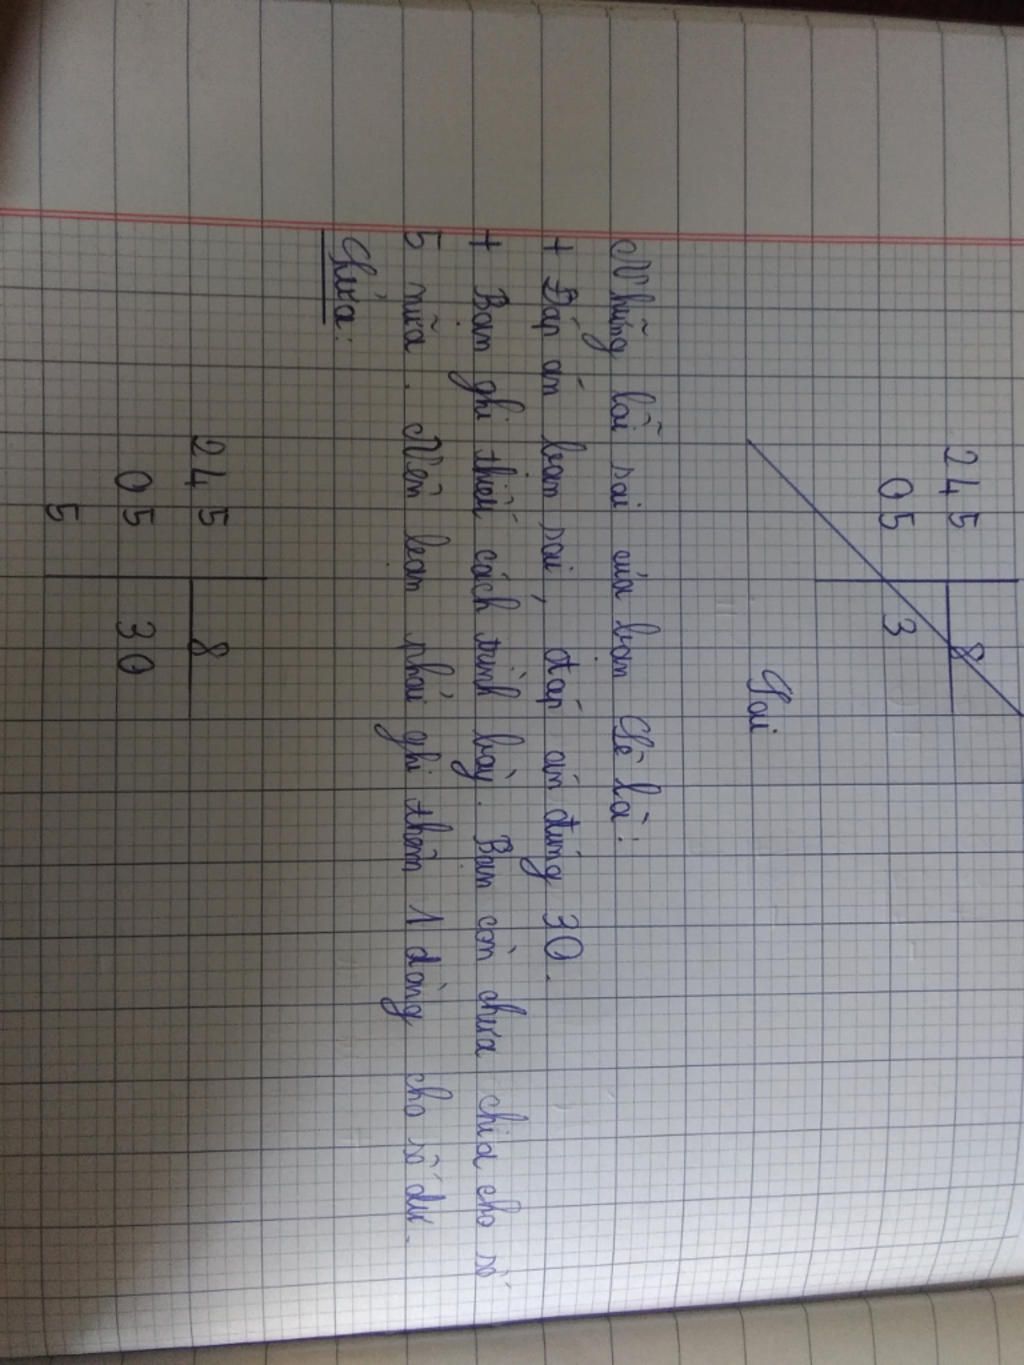 245 8
05 3
Sai
Những lỗi sai của bạn Lê là:
+ Đáp án bạn sai, đáp án đúng 30.
+ Bạn ghi thiếu cách trình bày. Bạn còn chưa chia cho số
5 nữa. Nên bạn phải ghi thêm 1 dòng cho số dư.
Chữa:
245 8
05 30
5